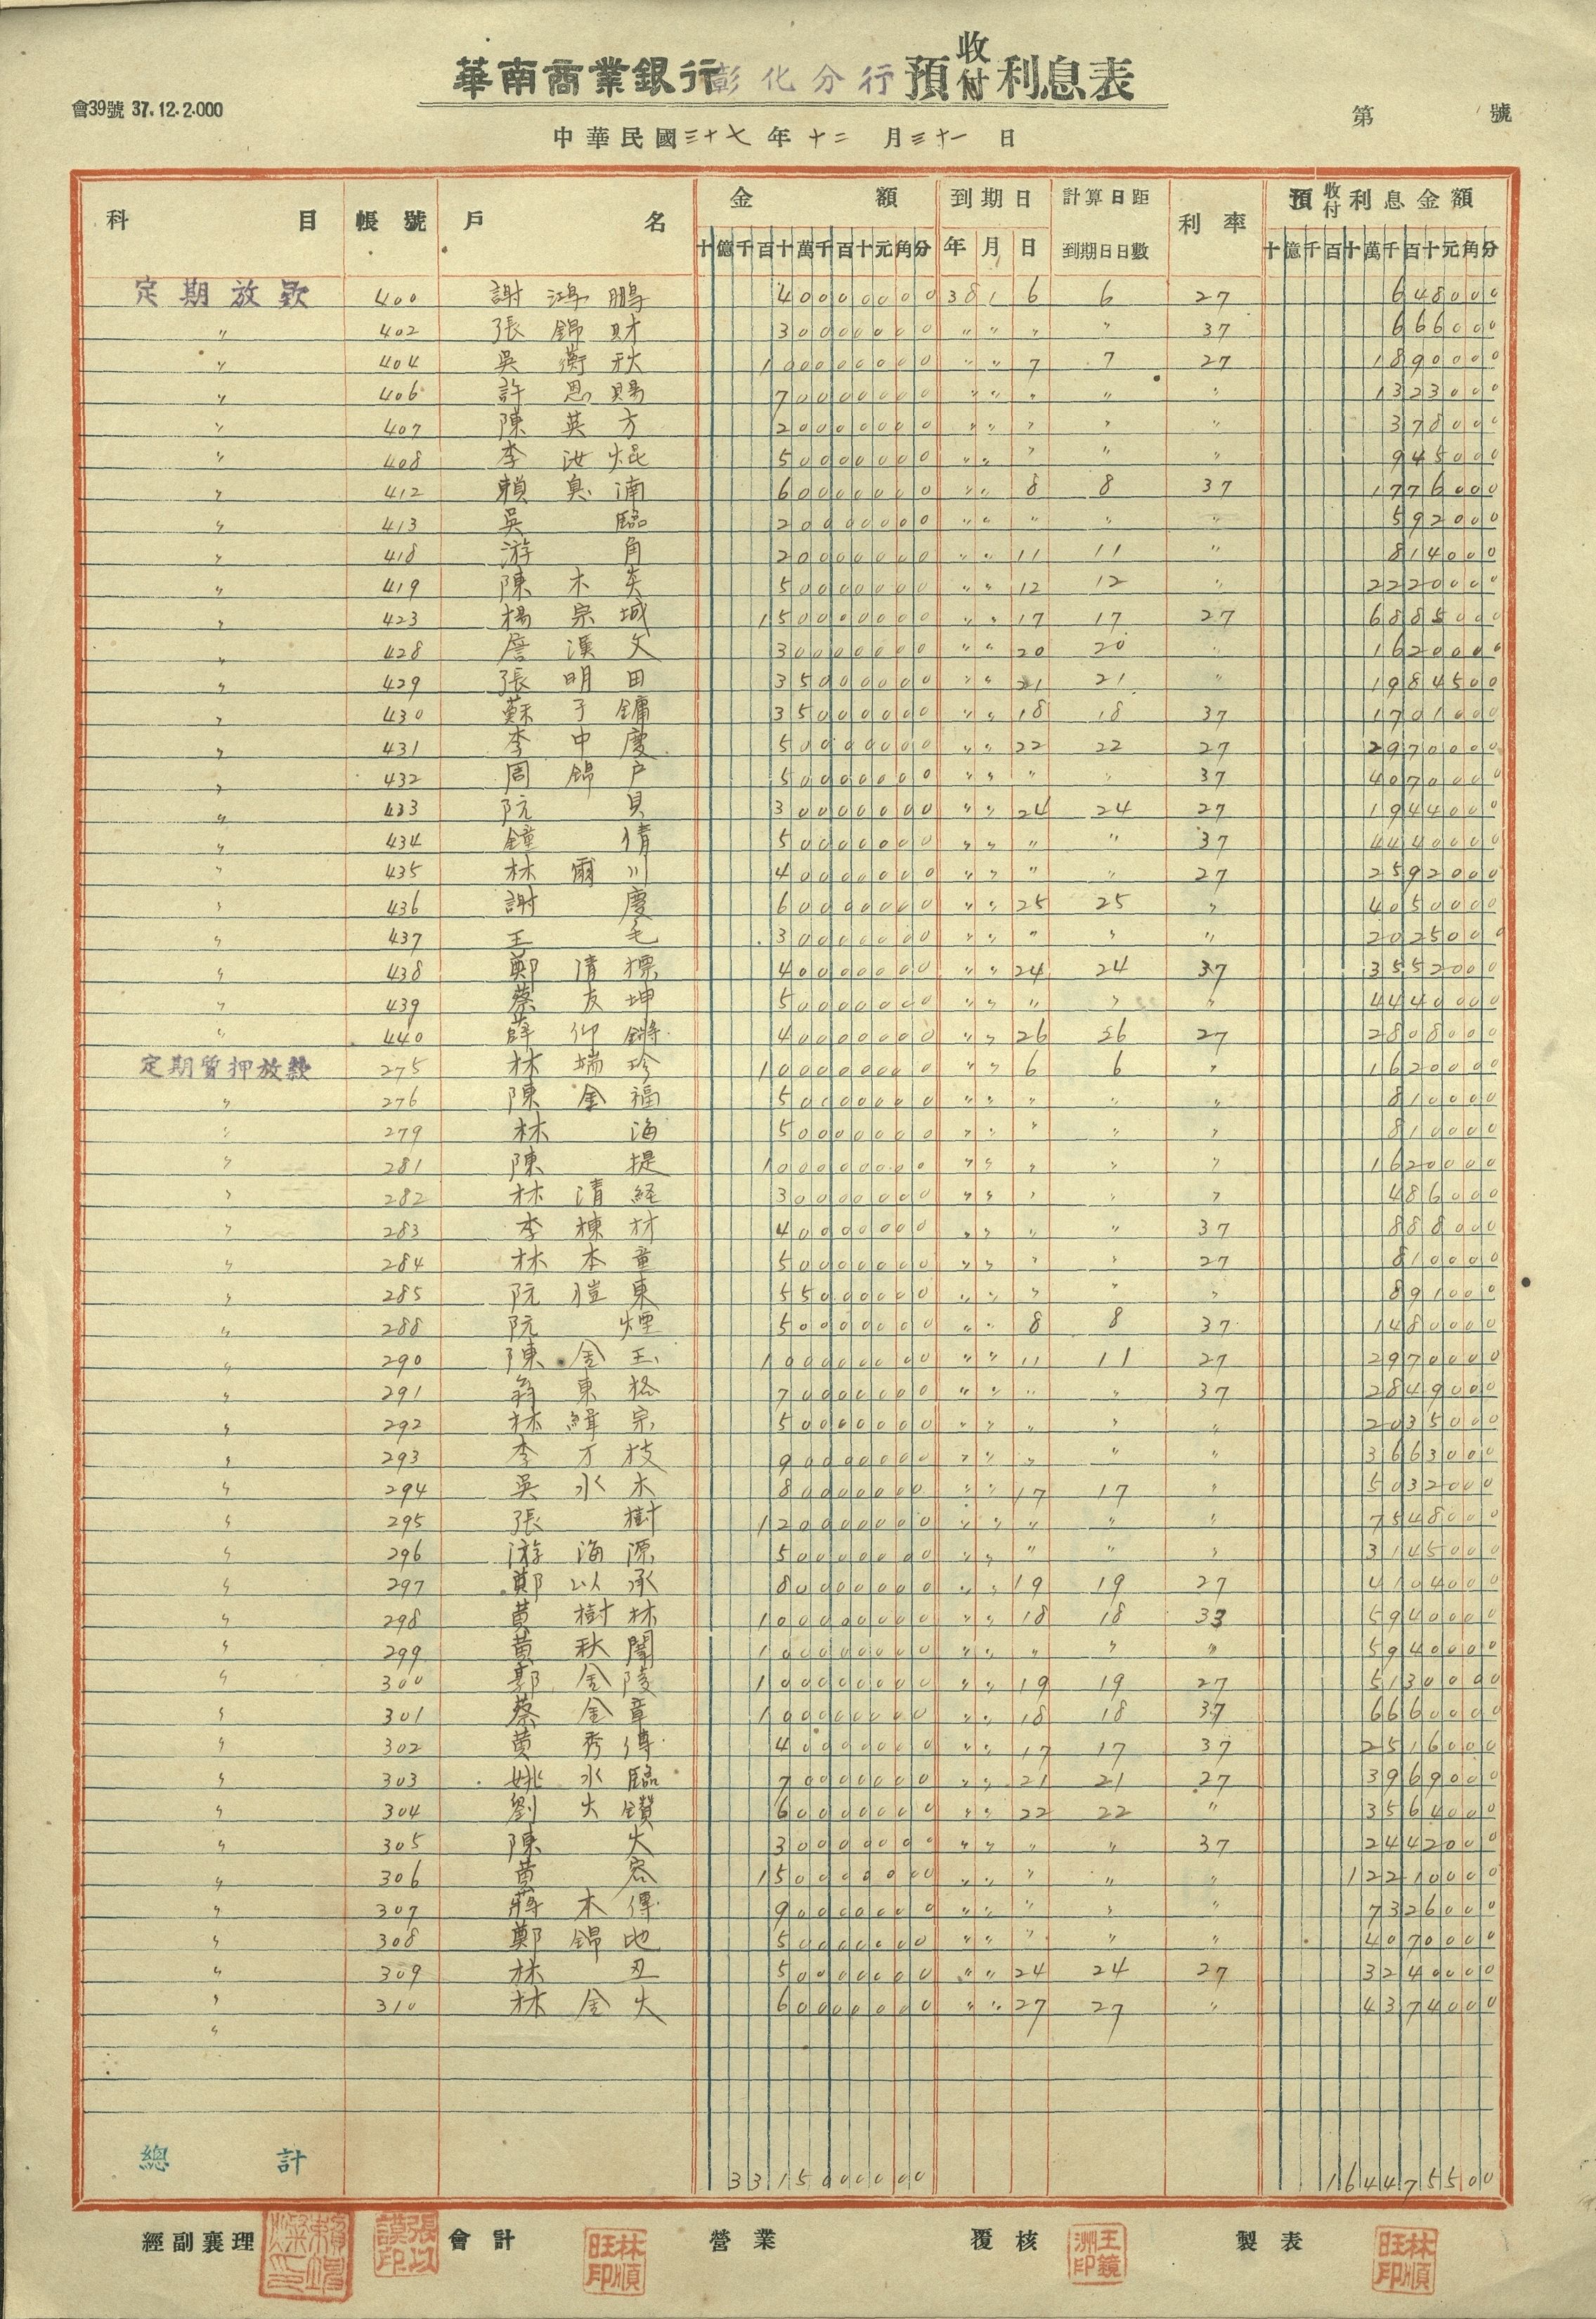 華南商業銀行彰化分行預收付利息表
會39號 37.12.2.000
第 號
中華民國三十七年十二月三十一日
科目 帳號 戶名 金額 到期日 計算日距到期日日數 利率 預收付利息金額
十億千百十萬千百十元角分 年月日 十億千百十萬千百十元角分
定期放款 400 謝鴻鵬 40000000 38 1 6 6 27 648000
〃 402 張錦財 30000000 〃 〃 〃 〃 37 666000
〃 404 吳蘅秋 100000000 〃 〃 7 7 27 1890000
〃 406 許恩賜 70000000 〃 〃 〃 〃 〃 1323000
〃 407 陳英方 20000000 〃 〃 〃 〃 〃 378000
〃 408 李汝焜 50000000 〃 〃 〃 〃 〃 945000
〃 412 賴 60000000 〃 〃 8 8 37 1776000
〃 413 吳臨 20000000 〃 〃 〃 〃 〃 592000
〃 418 游角 20000000 〃 〃 11 11 〃 814000
〃 419 陳木炎 50000000 〃 〃 12 12 〃 2220000
〃 423 楊宗城 150000000 〃 〃 17 17 27 6885000
〃 428 詹漢文 30000000 〃 〃 20 20 〃 1620000
〃 429 張明田 35000000 〃 〃 21 21 〃 1984500
〃 430 蘇子鏞 35000000 〃 〃 18 18 37 1701000
〃 431 李中慶 50000000 〃 〃 22 22 27 2970000
〃 432 周錦戶 50000000 〃 〃 〃 〃 37 4070000
〃 433 阮貝 30000000 〃 〃 24 24 27 1944000
〃 434 鐘倩 50000000 〃 〃 〃 〃 37 4440000
〃 435 林爾川 40000000 〃 〃 〃 〃 27 2592000
〃 436 謝慶 60000000 〃 〃 25 25 〃 4050000
〃 437 王毛 30000000 〃 〃 〃 〃 〃 2025000
〃 438 鄭清標 40000000 〃 〃 24 24 37 3552000
〃 439 蔡友坤 50000000 〃 〃 〃 〃 〃 4440000
〃 440 薛仰鏘 40000000 〃 〃 26 26 27 2808000
定期質押放款 275 林瑞珍 100000000 〃 〃 6 6 〃 1620000
〃 276 陳金福 50000000 〃 〃 〃 〃 〃 810000
〃 279 林海 50000000 〃 〃 〃 〃 〃 810000
〃 281 陳提 100000000 〃 〃 〃 〃 〃 1620000
〃 282 林清経 30000000 〃 〃 〃 〃 〃 486000
〃 283 李棟材 40000000 〃 〃 〃 〃 37 888000
〃 284 林本童 50000000 〃 〃 〃 〃 27 810000
〃 285 阮愷東 55000000 〃 〃 〃 〃 〃 891000
〃 288 阮煙 50000000 〃 〃 8 8 37 1480000
〃 290 陳金玉 100000000 〃 〃 11 11 27 2970000
〃 291 翁東格 70000000 〃 〃 〃 〃 37 2849000
〃 292 林緝宗 50000000 〃 〃 〃 〃 〃 2035000
〃 293 李才枝 90000000 〃 〃 〃 〃 〃 3663000
〃 294 吳水木 80000000 〃 〃 17 17 〃 5032000
〃 295 張樹 120000000 〃 〃 〃 〃 〃 7548000
〃 296 游海源 50000000 〃 〃 〃 〃 〃 3145000
〃 297 鄭以承 80000000 〃 〃 19 19 27 4104000
〃 298 黃樹林 100000000 〃 〃 18 18 33 5940000
〃 299 黃秋闈 100000000 〃 〃 〃 〃 〃 5940000
〃 300 郭金陵 100000000 〃 〃 19 19 27 5130000
〃 301 蔡金章 100000000 〃 〃 18 18 37 6660000
〃 302 黃秀傳 40000000 〃 〃 17 17 37 2516000
〃 303 姚水臨 70000000 〃 〃 21 21 27 3969000
〃 304 劉火鑽 60000000 〃 〃 22 22 〃 3564000
〃 305 陳火 30000000 〃 〃 〃 〃 37 2442000
〃 306 黃容 150000000 〃 〃 〃 〃 〃 12210000
〃 307 蔣木傳 90000000 〃 〃 〃 〃 〃 7326000
〃 308 鄭錦地 50000000 〃 〃 〃 〃 〃 4070000
〃 309 林丑 50000000 〃 〃 24 24 27 3240000
〃 310 林金火 60000000 〃 〃 27 27 〃 4374000
〃
總計 3315000000 164475500
經副襄理 會計 營業 覆核 製表
張以謨印 林順旺印 王鏡洲印 林順旺印